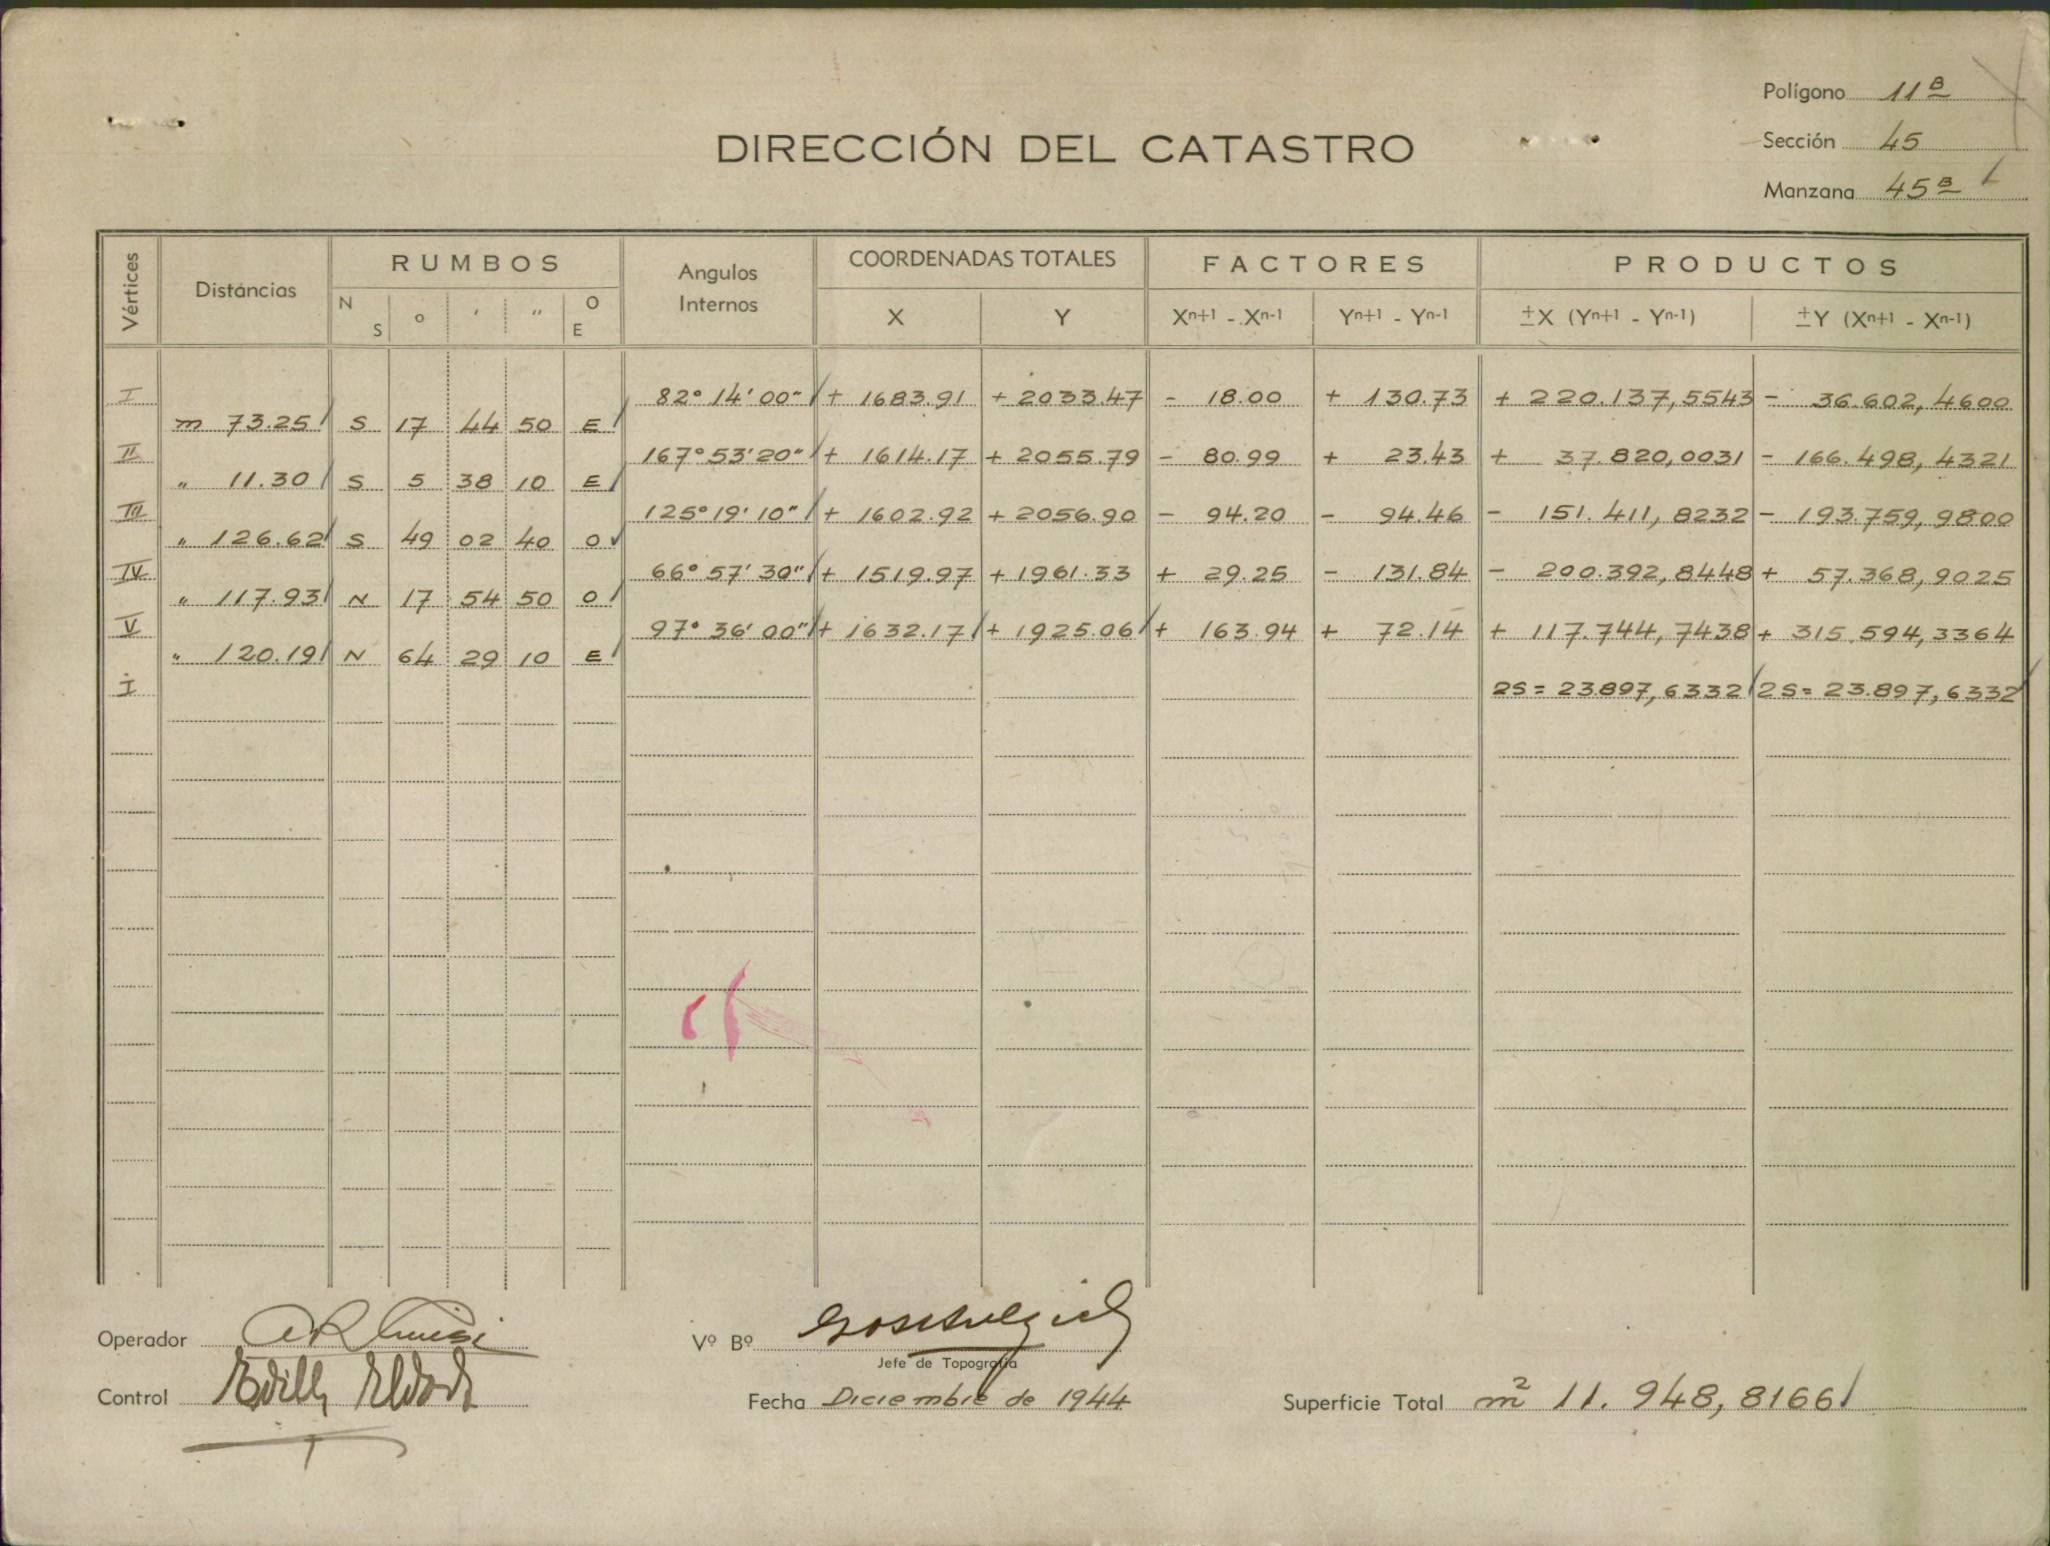 Polígono 11 B
Sección 45
Manzana 45 B
DIRECCIÓN DEL CATASTRO
Vértices Distáncias RUMBOS Angulos Internos COORDENADAS TOTALES FACTORES PRODUCTOS
N S o ' " O E X Y Xn+1 - Xn-1 Yn+1 - Yn-1 ±X (Yn+1 - Yn-1) ±Y (Xn+1 - Xn-1)
I 82° 14' 00" + 1683.91 + 2033.47 - 18.00 + 130.73 + 220.137,5543 - 36.602,4600
m 73.25 S 17 44 50 E
II 167° 53' 20" + 1614.17 + 2055.79 - 80.99 + 23.43 + 37.820,0031 - 166.498,4321
" 11.30 S 5 38 10 E
III 125° 19' 10" + 1602.92 + 2056.90 - 94.20 - 94.46 - 151.411,8232 - 193.759,9800
" 126.62 S 49 02 40 O
IV 66° 57' 30" + 1519.97 + 1961.33 + 29.25 - 131.84 - 200.392,8448 + 57.368,9025
" 117.93 N 17 54 50 O
V 97° 36' 00" + 1632.17 + 1925.06 + 163.94 + 72.14 + 117.744,7438 + 315.594,3364
" 120.19 N 64 29 10 E
I 2S = 23.897,6332 2S = 23.897,6332
Operador
Vº Bº
Jefe de Topografia
Control
Fecha Diciembre de 1944
Superficie Total m2 11.948,8166